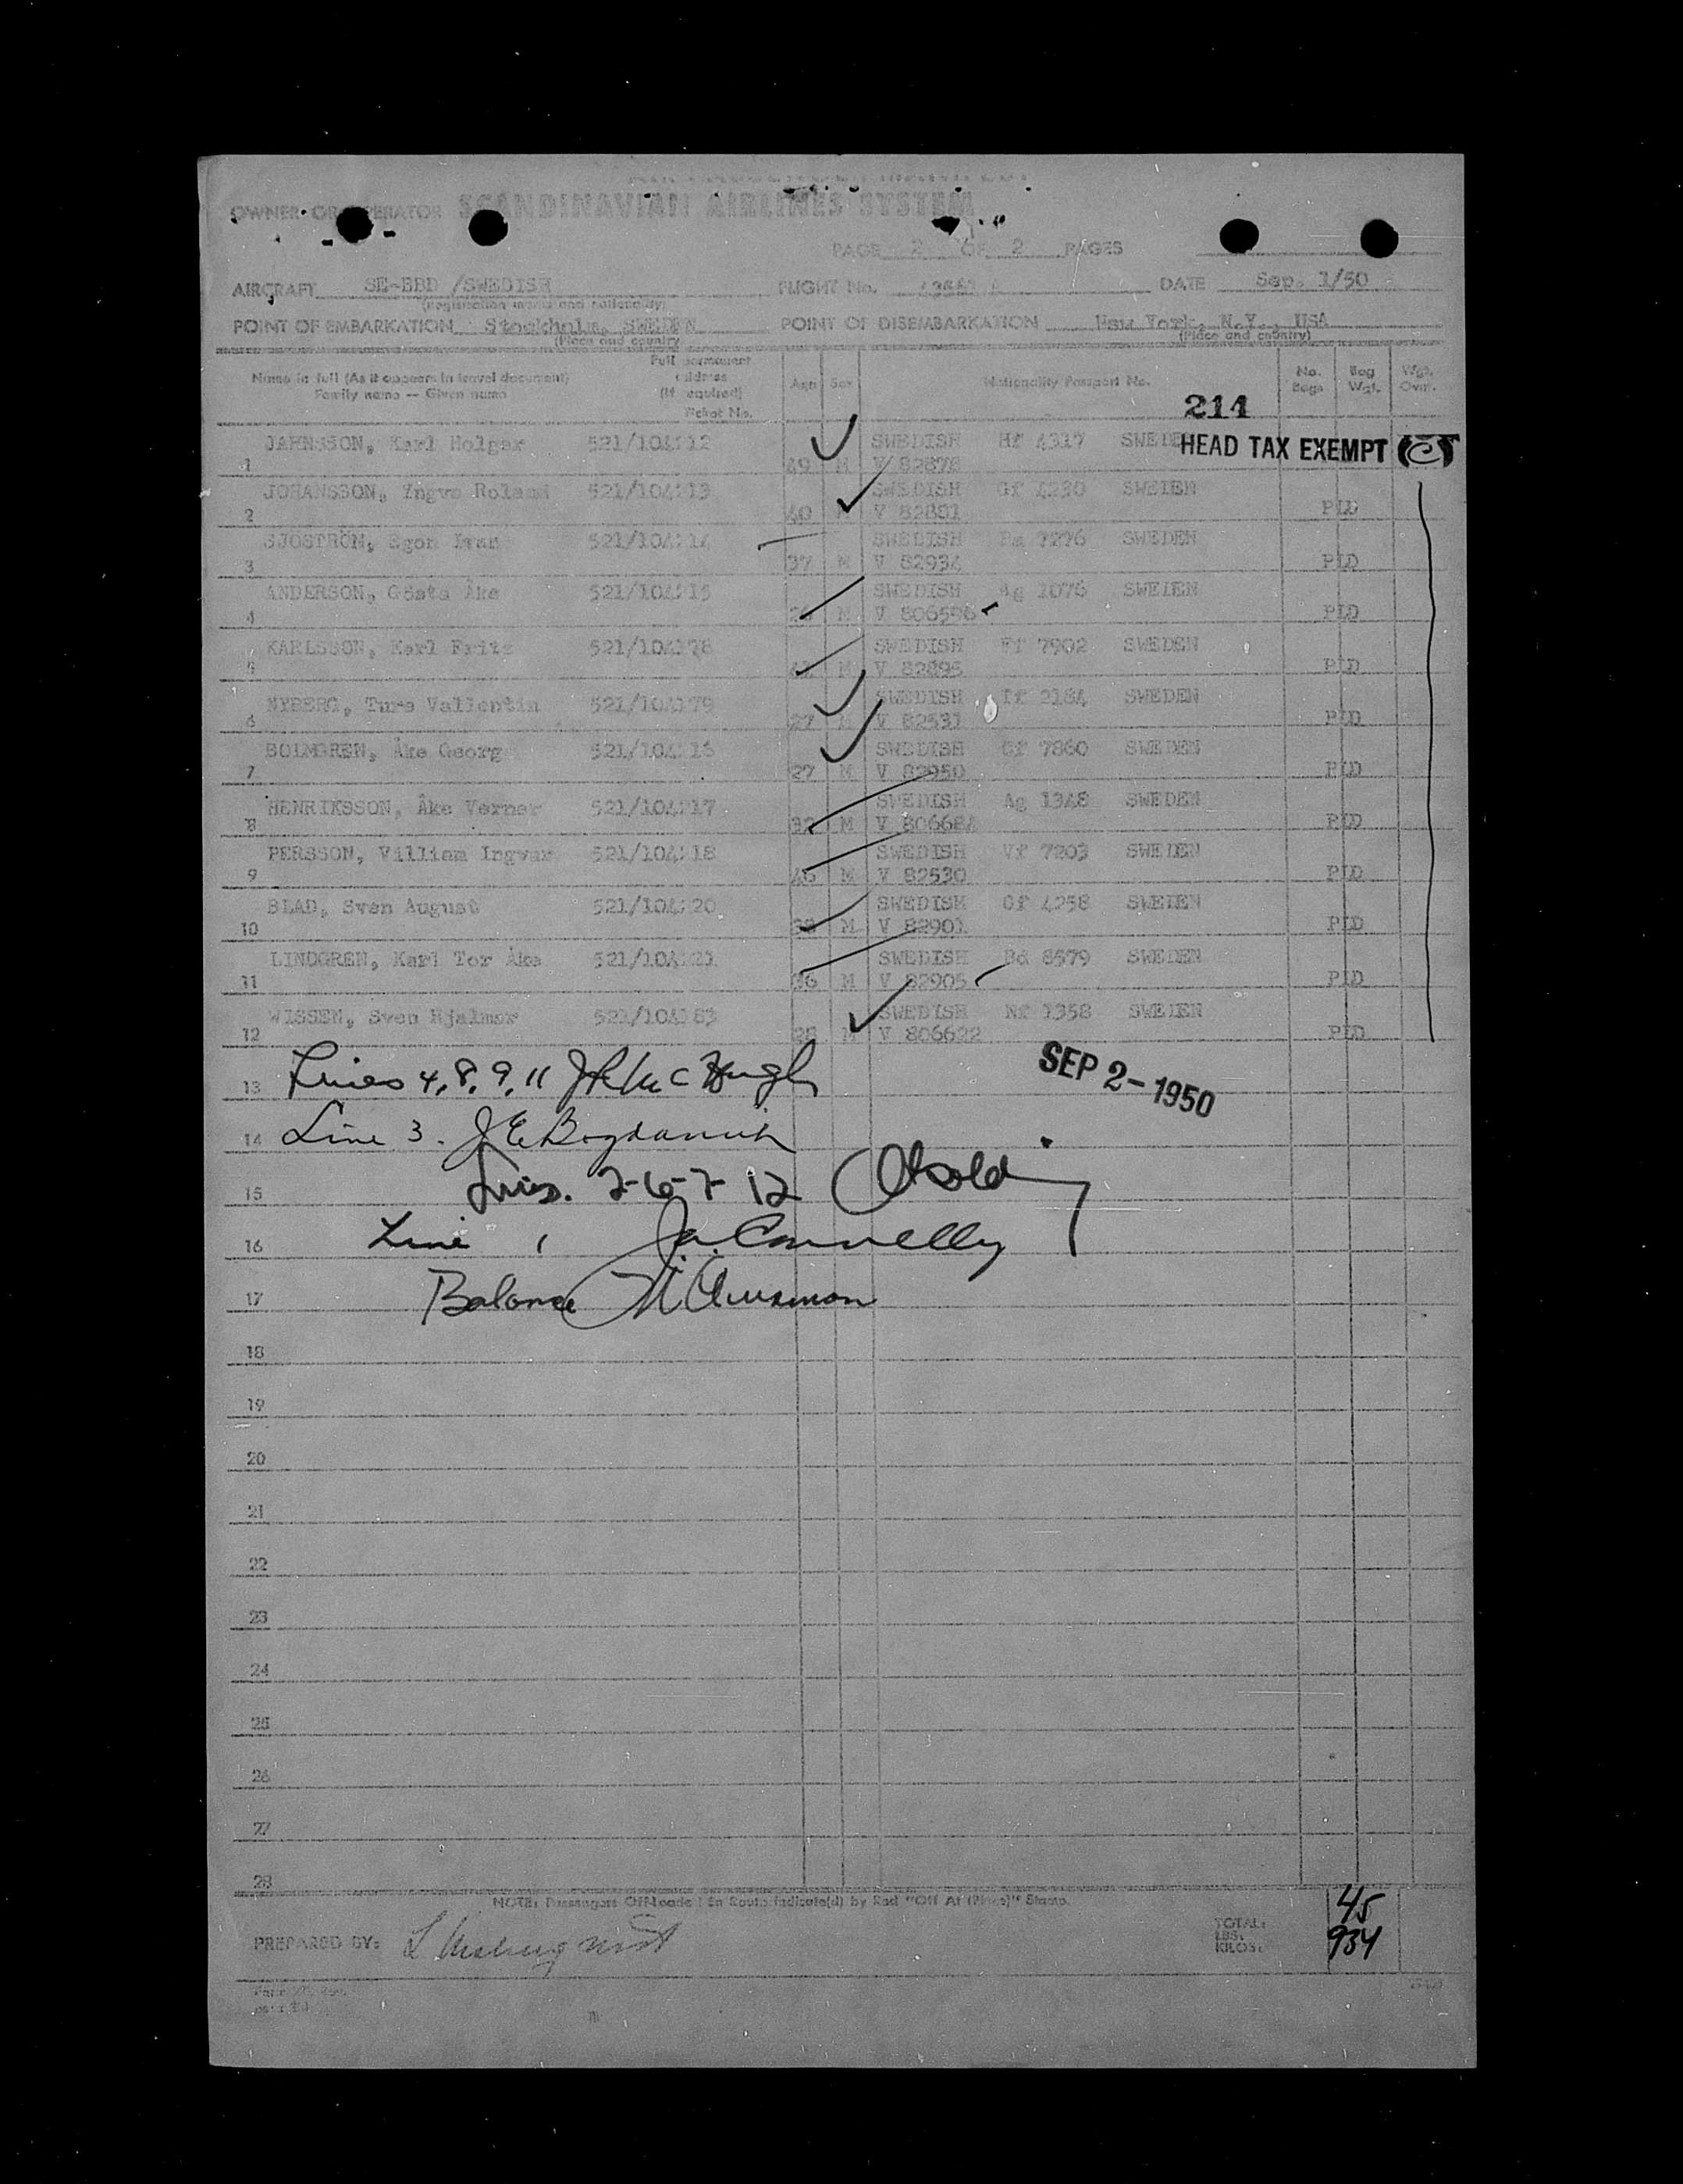 OWNER OR OPERATOR SCANDINAVIAN AIRLINES SYSTEM
PAGE 2 OF 2 PAGES
AIRCRAFT SE-BBD /SWEDISH FLIGHT No. DATE Sep. 1/50
(Registration marks and nationality)
POINT OF EMBARKATION Stockholm, SWEDEN POINT OF DISEMBARKATION New York, N.Y., USA
(Place and country (Place and country)
Name in full (As it appears in travel document) Full permanent address Age Sex Nationality Passport No. No. Bags Bag Wgt. Wgt. Ovwt.
Family name -- Given name (If required)
Ticket No.
214
HEAD TAX EXEMPT
JAHNSSON, Karl Holger 521/104112 SWEDISH Hf 4317 SWEDEN
1 49 M V 82878
JOHANSSON, Yngve Roland 521/104113 SWEDISH Gf 4230 SWEDEN
2 40 M V 82801 PLD
SJÖSTRÖM, Egon Ivan 521/104114 SWEDISH 7276 SWEDEN
3 37 M V 82934 PLD
ANDERSON, Gösta Åke 521/104115 SWEDISH Ag 1076 SWEDEN
4 M V 806596 PLD
KARLSSON, Karl Fritz 521/104178 SWEDISH Ff 7902 SWEDEN
5 M V 82895 PLD
NYBERG, Ture Vallentin 521/104179 SWEDISH 2184 SWEDEN
6 27 M V 82531 PLD
BOLMGREN, Åke Georg 521/104116 SWEDISH Gf 7860 SWEDEN
7 27 M V 82950 PLD
HENRIKSSON, Åke Verner 521/104117 SWEDISH Ag 1348 SWEDEN
8 32 M V 806684 PLD
PERSSON, Villiam Ingvar 521/104118 SWEDISH Vf 7203 SWEDEN
9 46 M V 82530 PLD
BLAD, Sven August 521/104120 SWEDISH Gf 4258 SWEDEN
10 38 M V 82901 PLD
LINDGREN, Karl Tor Åke 521/104121 SWEDISH Bd 8579 SWEDEN
11 36 M V 82905 PLD
WISSEN, Sven Hjalmar 521/104183 SWEDISH Nf 1358 SWEDEN
12 28 M V 806622 PLD
SEP 2-1950
13 Lines 4, 8, 9, 11 McHugh
14 Line 3. J E Bogdanich
15 Lines. 2-6-7 12
16 Line 1 J.A. Connelly
17 Balance M
18
19
20
21
22
23
24
25
26
27
28
NOTE: Passengers Offloaded En Route Indicate(d) by Red "Off At (Place)" Stamp.
PREPARED BY: TOTAL: 45
LBS.
KILOS: 934